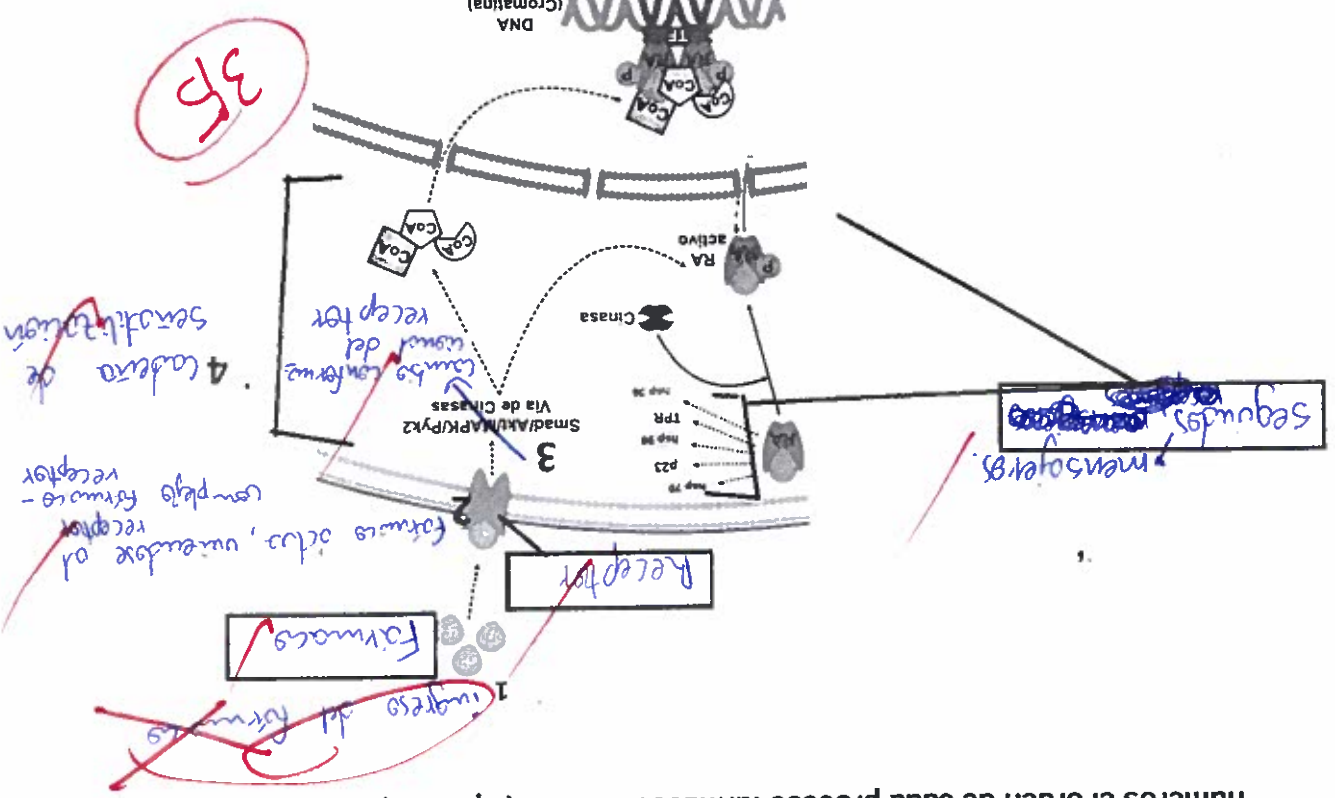 números el orden de cada proceso
1
ingreso del fármaco
Fármaco
Receptor
2
fármaco actua, uniendose al
receptor
complejo fármaco-
receptor
mensajeros.
Segundos
hsp 70
p23
hsp 90
TPR
RA
3
Smad/Akt/MAPK/Pyk2
Vía de Cinasas
Cambio conforma-
cional del
receptor
4
cadena de
señalización
Cinasa
RA
activo
P
CoA
CoA
CoA
CoA
CoA
CoA
P
P
TF
DNA
(Cromatina)